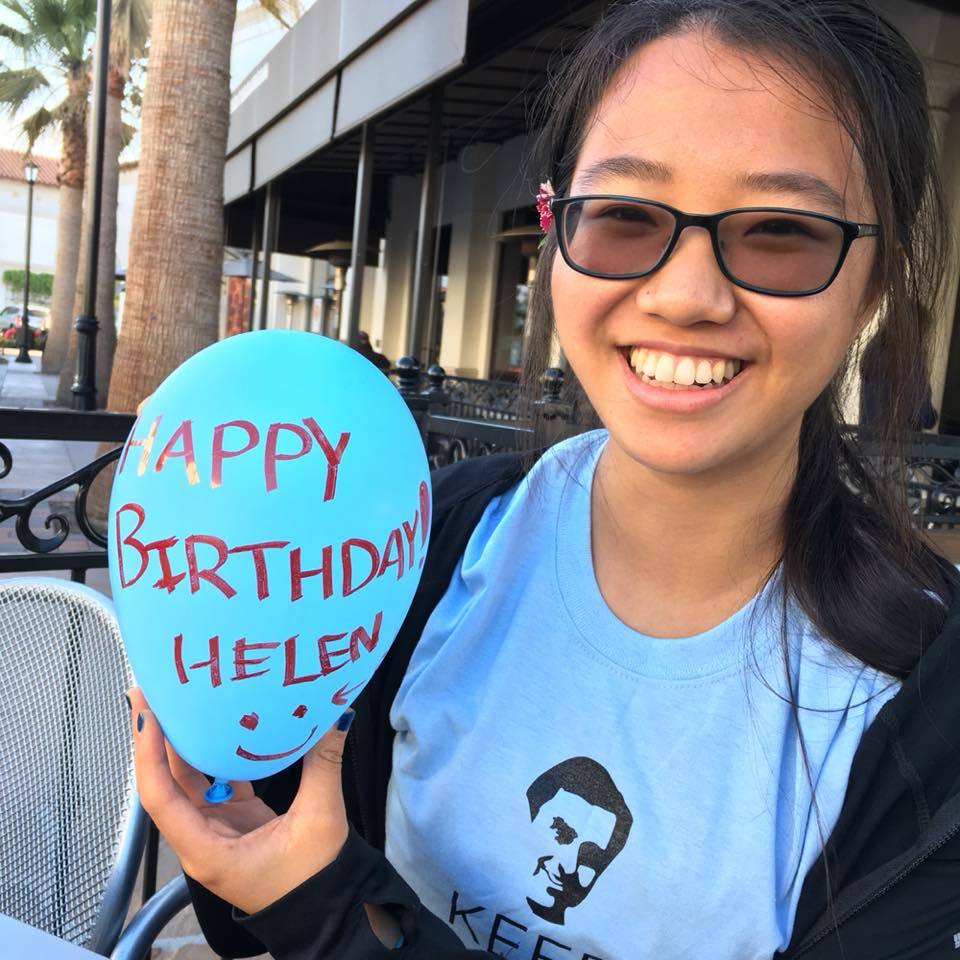 HAPPY
BIRTHDAY!
HELEN
KEEP